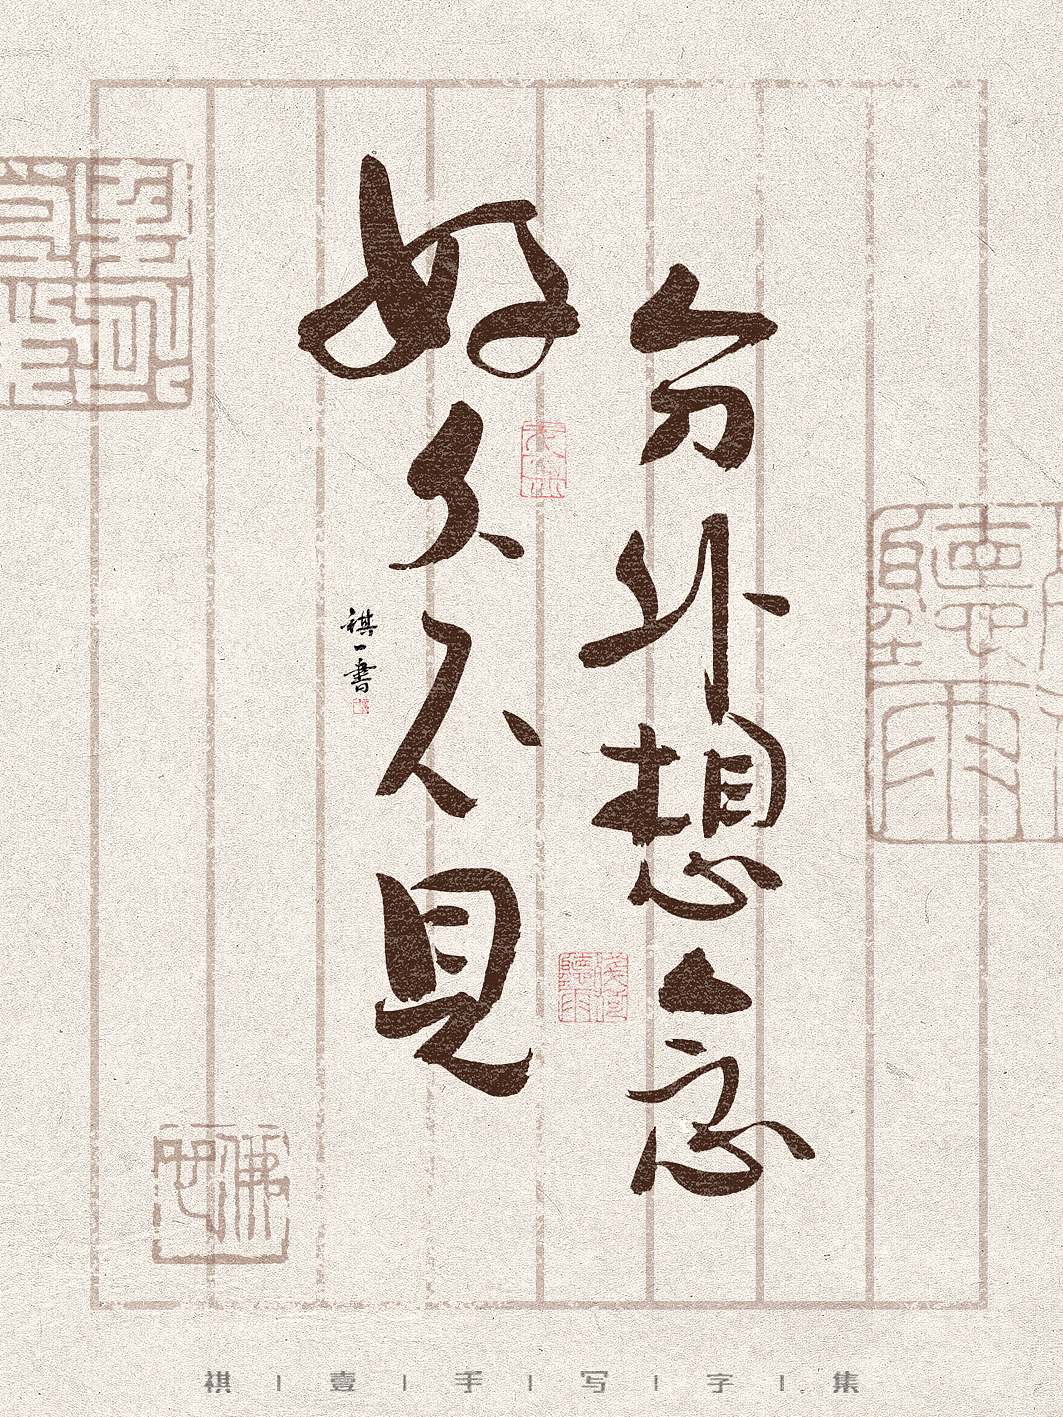 分外想念
好久不見
祺一書
祺|壹|手|写|字|集